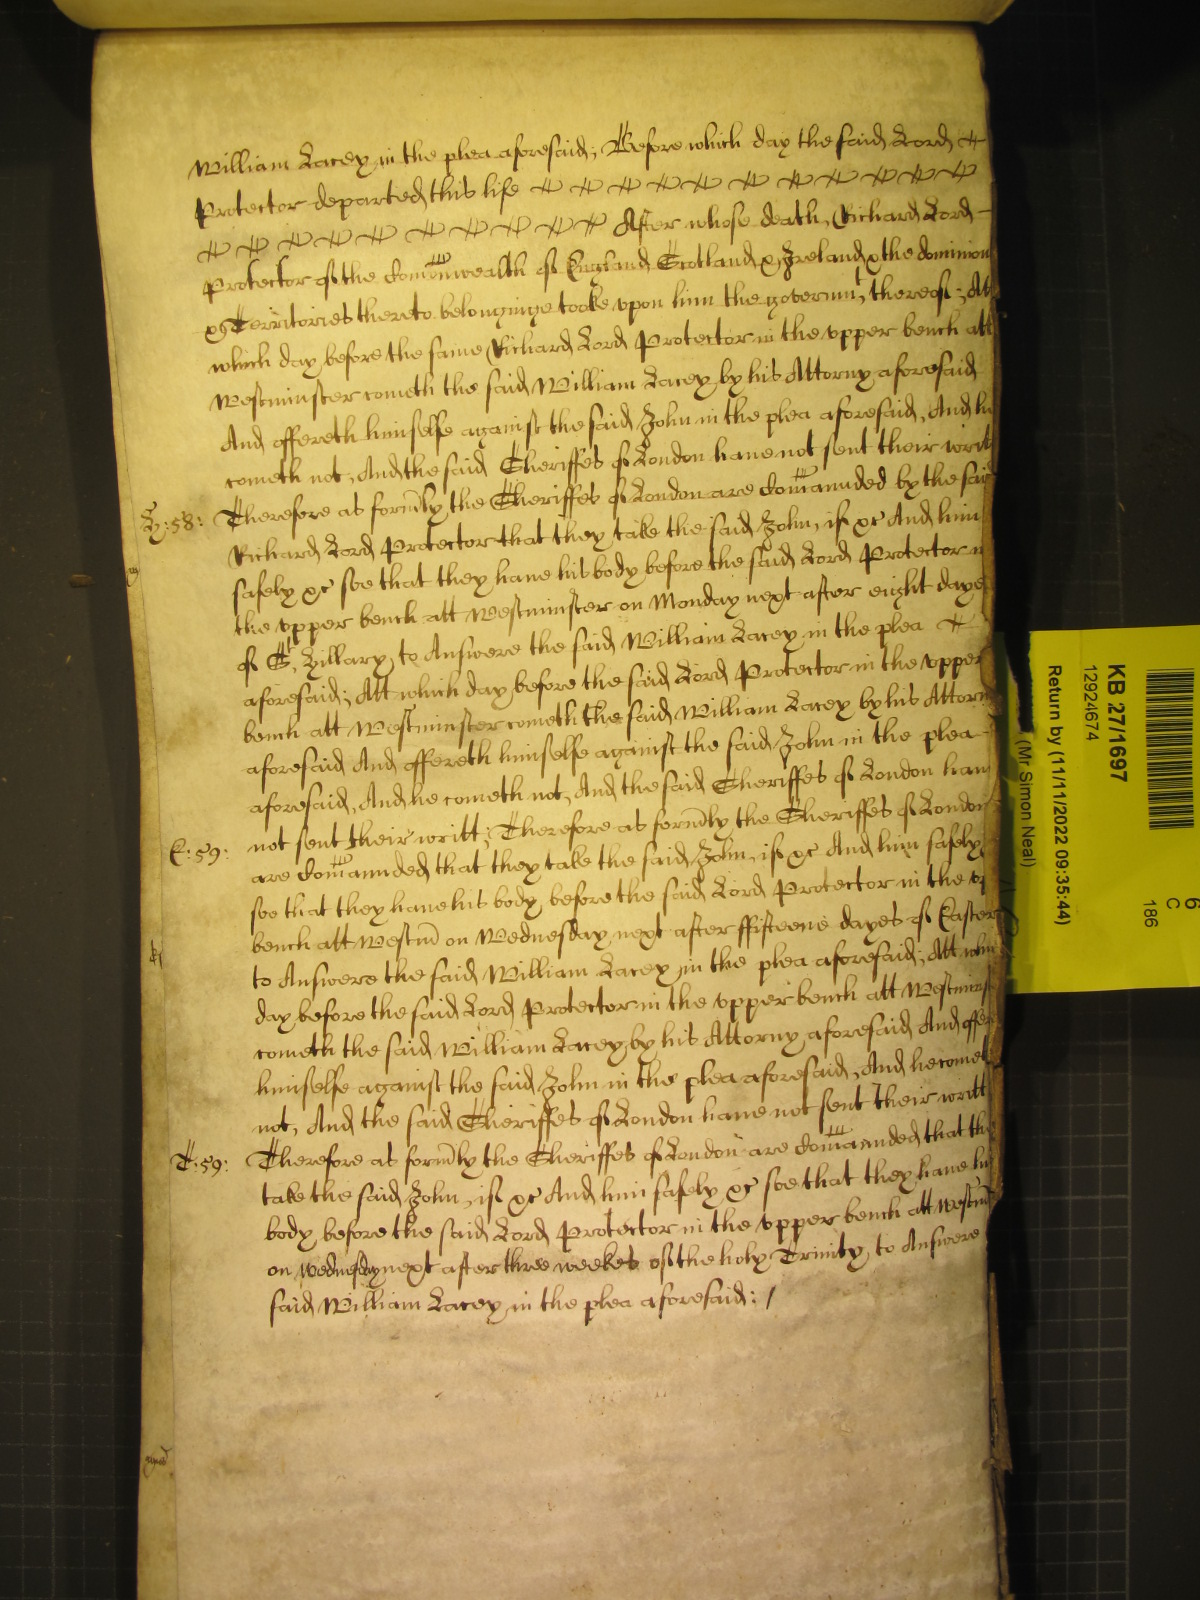 William Lacey in the plea aforesaid; Before which day the said Lord
Protector departed this life
After whose death, Richard Lord
Protector of the Comonwealth of England Scotland & Ireland & the dominion
& Territories thereto belonginge tooke upon him the governmt thereof; Att
which day before the same Richard Lord Protector in the upper bench att
Westminster cometh the said William Lacey by his Attorny aforesaid
And offereth himselfe against the said John in the plea aforesaid, And he
cometh not, And the said Sheriffes of London have not sent their writt
H: 58: Therefore as formly the Sheriffes of London are comannded by the said
Richard Lord Protector that they take the said John, if &c And him
safely &c soe that they have his body before the said Lord Protector in
the upper bench att Westminster on Monday next after eight dayes
of St Hillary, to Answere the said William Lacey in the plea
aforesaid; Att which day before the said Lord Protector in the upper
bench att Westminster cometh the said William Lacey by his Attorn
aforesaid And offereth himselfe against the said John in the plea
aforesaid, And he cometh not, And the said Sheriffes of London have
not sent their writt; Therefore as formly the Sheriffes of London
E: 59: are comannded that they take the said John, if &c And him safely
soe that they have his body before the said Lord Protector in the up
bench att Westm on Wednesday next after fifteene dayes of Easter
to Answere the said William Lacey in the plea aforesaid; Att which
day before the said Lord Protector in the upper bench att Westminst
cometh the said William Lacey by his Attorny aforesaid And offer
himselfe against the said John in the plea aforesaid, And he comet
not, And the said Sheriffes of London have not sent their writt
T: 59: Therefore as formly the Sheriffes of London are comannded that the
take the said John, if &c And him safely &c soe that they have his
body before the said Lord Protector in the upper bench att Westm
on Wednesday next after three weekes of the holy Trinity, to Answere
said William Lacey in the plea aforesaid: /
KB 27/1697
12924674
Return by (11/11/2022 09:35:44)
(Mr. Simon Neal)
6
C
186